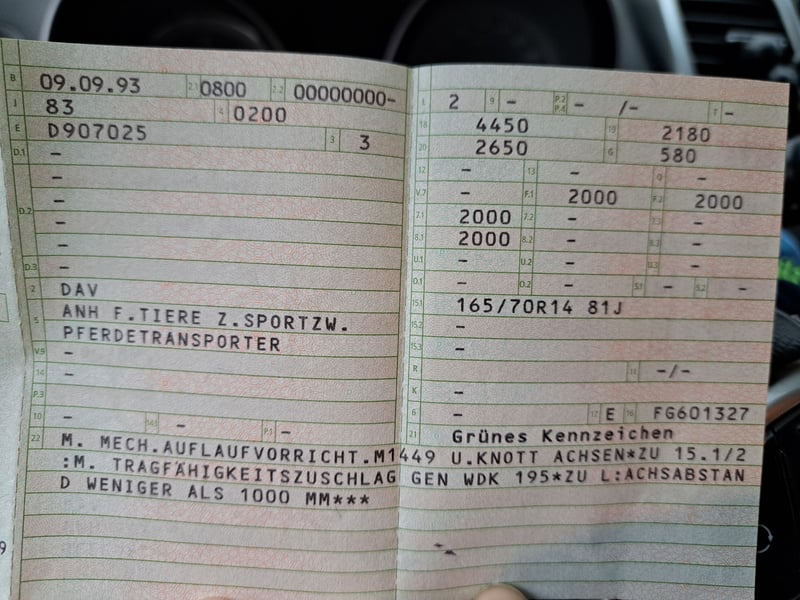 B 09.09.93 2.1 0800 2.2 00000000-
J 83 4 0200
E D907025 3 3
D.1 -
-
D.2 -
-
-
D.3 -
2 DAV
5 ANH F.TIERE Z.SPORTZW.
PFERDETRANSPORTER
V.9 -
14 -
P.3
10 - - P.1 -
22 M. MECH.AUFLAUFVORRICHT.M1449 U.KNOTT ACHSEN*ZU 15.1/2
:M. TRAGFÄHIGKEITSZUSCHLAG GEN WDK 195*ZU L:ACHSABSTAN
D WENIGER ALS 1000 MM***
L 2 9 - P.2 P.4 - /- T -
18 4450 19 2180
20 2650 G 580
12 - 13 - Q -
V.7 - F.1 2000 F.2 2000
7.1 2000 7.2 - 7.3 -
8.1 2000 8.2 - 8.3 -
U.1 - U.2 - U.3 -
O.1 - O.2 - S.1 - S.2 -
15.1 165/70R14 81J
15.2 -
15.3 -
R 11 -/-
K -
6 - 17 E 16 FG601327
21 Grünes Kennzeichen
9